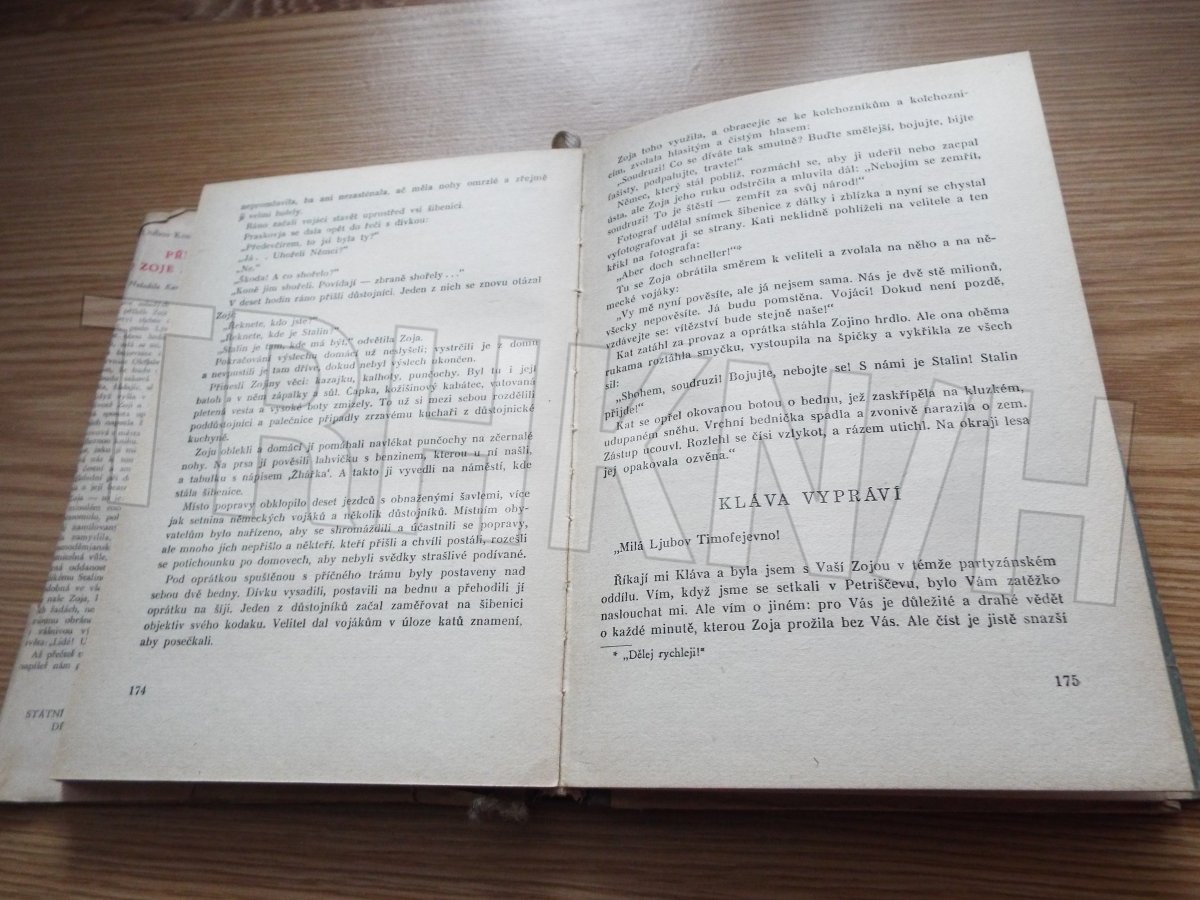 nepromluvila, ba ani nezasténala, ač měla nohy omrzlé a zřejmě
ji velmi bolely.
Ráno začali vojáci stavět uprostřed vsi šibenici.
Praskovja se dala opět do řeči s dívkou:
„Předevčírem, to jsi byla ty?“
„Já. . Uhořeli Němci?“
„Ne.“
„Škoda! A co shořelo?“
„Koně jim shořeli. Povídají — zbraně shořely . . .“
V deset hodin ráno přišli důstojníci. Jeden z nich se znovu otázal
Zoji:
„Řekněte, kdo jste?“
„Řekněte, kde je Stalin?“
„Stalin je tam, kde má být,“ odvětila Zoja.
Pokračování výslechu domácí už neslyšeli; vystrčili je z domu
a nevpustili je tam dříve, dokud nebyl výslech ukončen.
Přinesli Zojiny věci: kazajku, kalhoty, punčochy. Byl tu i její
batoh a v něm zápalky a sůl. Čapka, kožišinový kabátec, vatovaná
pletená vesta a vysoké boty zmizely. To už si mezi sebou rozdělili
poddůstojníci a palečnice připadly zrzavému kuchaři z důstojnické
kuchyně.
Zoju oblekli a domácí jí pomáhali navlékat punčochy na zčernalé
nohy. Na prsa jí pověsili lahvičku s benzinem, kterou u ní našli,
a tabulku s nápisem ‚Žhářka‘. A takto ji vyvedli na náměstí, kde
stála šibenice.
Místo popravy obklopilo deset jezdců s obnaženými šavlemi, více
jak setnina německých vojáků a několik důstojníků. Místním oby-
vatelům bylo nařízeno, aby se shromáždili a účastnili se popravy,
ale mnoho jich nepřišlo a někteří, kteří přišli a chvíli postáli, rozešli
se potichounku po domovech, aby nebyli svědky strašlivé podívané.
Pod oprátkou spuštěnou s příčného trámu byly postaveny nad
sebou dvě bedny. Dívku vysadili, postavili na bednu a přehodili jí
oprátku na šíji. Jeden z důstojníků začal zaměřovat na šibenici
objektiv svého kodaku. Velitel dal vojákům v úloze katů znamení,
aby posečkali.
174
Zoja toho využila, a obracejíc se ke kolchozníkům a kolchozni-
cím, zvolala hlasitým a čistým hlasem:
„Soudruzi! Co se díváte tak smutně? Buďte smělejší, bojujte, bijte
fašisty, podpalujte, travte!“
Němec, který stál poblíž, rozmáchl se, aby ji udeřil nebo zacpal
ústa, ale Zoja jeho ruku odstrčila a mluvila dál: „Nebojím se zemřít,
soudruzi! To je štěstí — zemřít za svůj národ!“
Fotograf udělal snímek šibenice z dálky i zblízka a nyní se chystal
vyfotografovat ji se strany. Kati neklidně pohlíželi na velitele a ten
křikl na fotografa:
„Aber doch schneller!“*
Tu se Zoja obrátila směrem k veliteli a zvolala na něho a na ně-
mecké vojáky:
„Vy mě nyní pověsíte, ale já nejsem sama. Nás je dvě stě milionů,
všecky nepověsíte. Já budu pomstěna. Vojáci! Dokud není pozdě,
vzdávejte se: vítězství bude stejně naše!“
Kat zatáhl za provaz a oprátka stáhla Zojino hrdlo. Ale ona oběma
rukama roztáhla smyčku, vystoupila na špičky a vykřikla ze všech
sil:
„Sbohem, soudruzi! Bojujte, nebojte se! S námi je Stalin! Stalin
přijde!“
Kat se opřel okovanou botou o bednu, jež zaskřípěla na kluzkém,
udupaném sněhu. Vrchní bednička spadla a zvonivě narazila o zem.
Zástup ucouvl. Rozlehl se čísi vzlykot, a rázem utichl. Na okraji lesa
jej opakovala ozvěna.“
KLÁVA VYPRÁVÍ
„Milá Ljubov Timofejevno!
Říkají mi Kláva a byla jsem s Vaší Zojou v témže partyzánském
oddílu. Vím, když jsme se setkali v Petriščevu, bylo Vám zatěžko
naslouchat mi. Ale vím o jiném: pro Vás je důležité a drahé vědět
o každé minutě, kterou Zoja prožila bez Vás. Ale číst je jistě snazší
* „Dělej rychleji!“
175
TRHKNIH